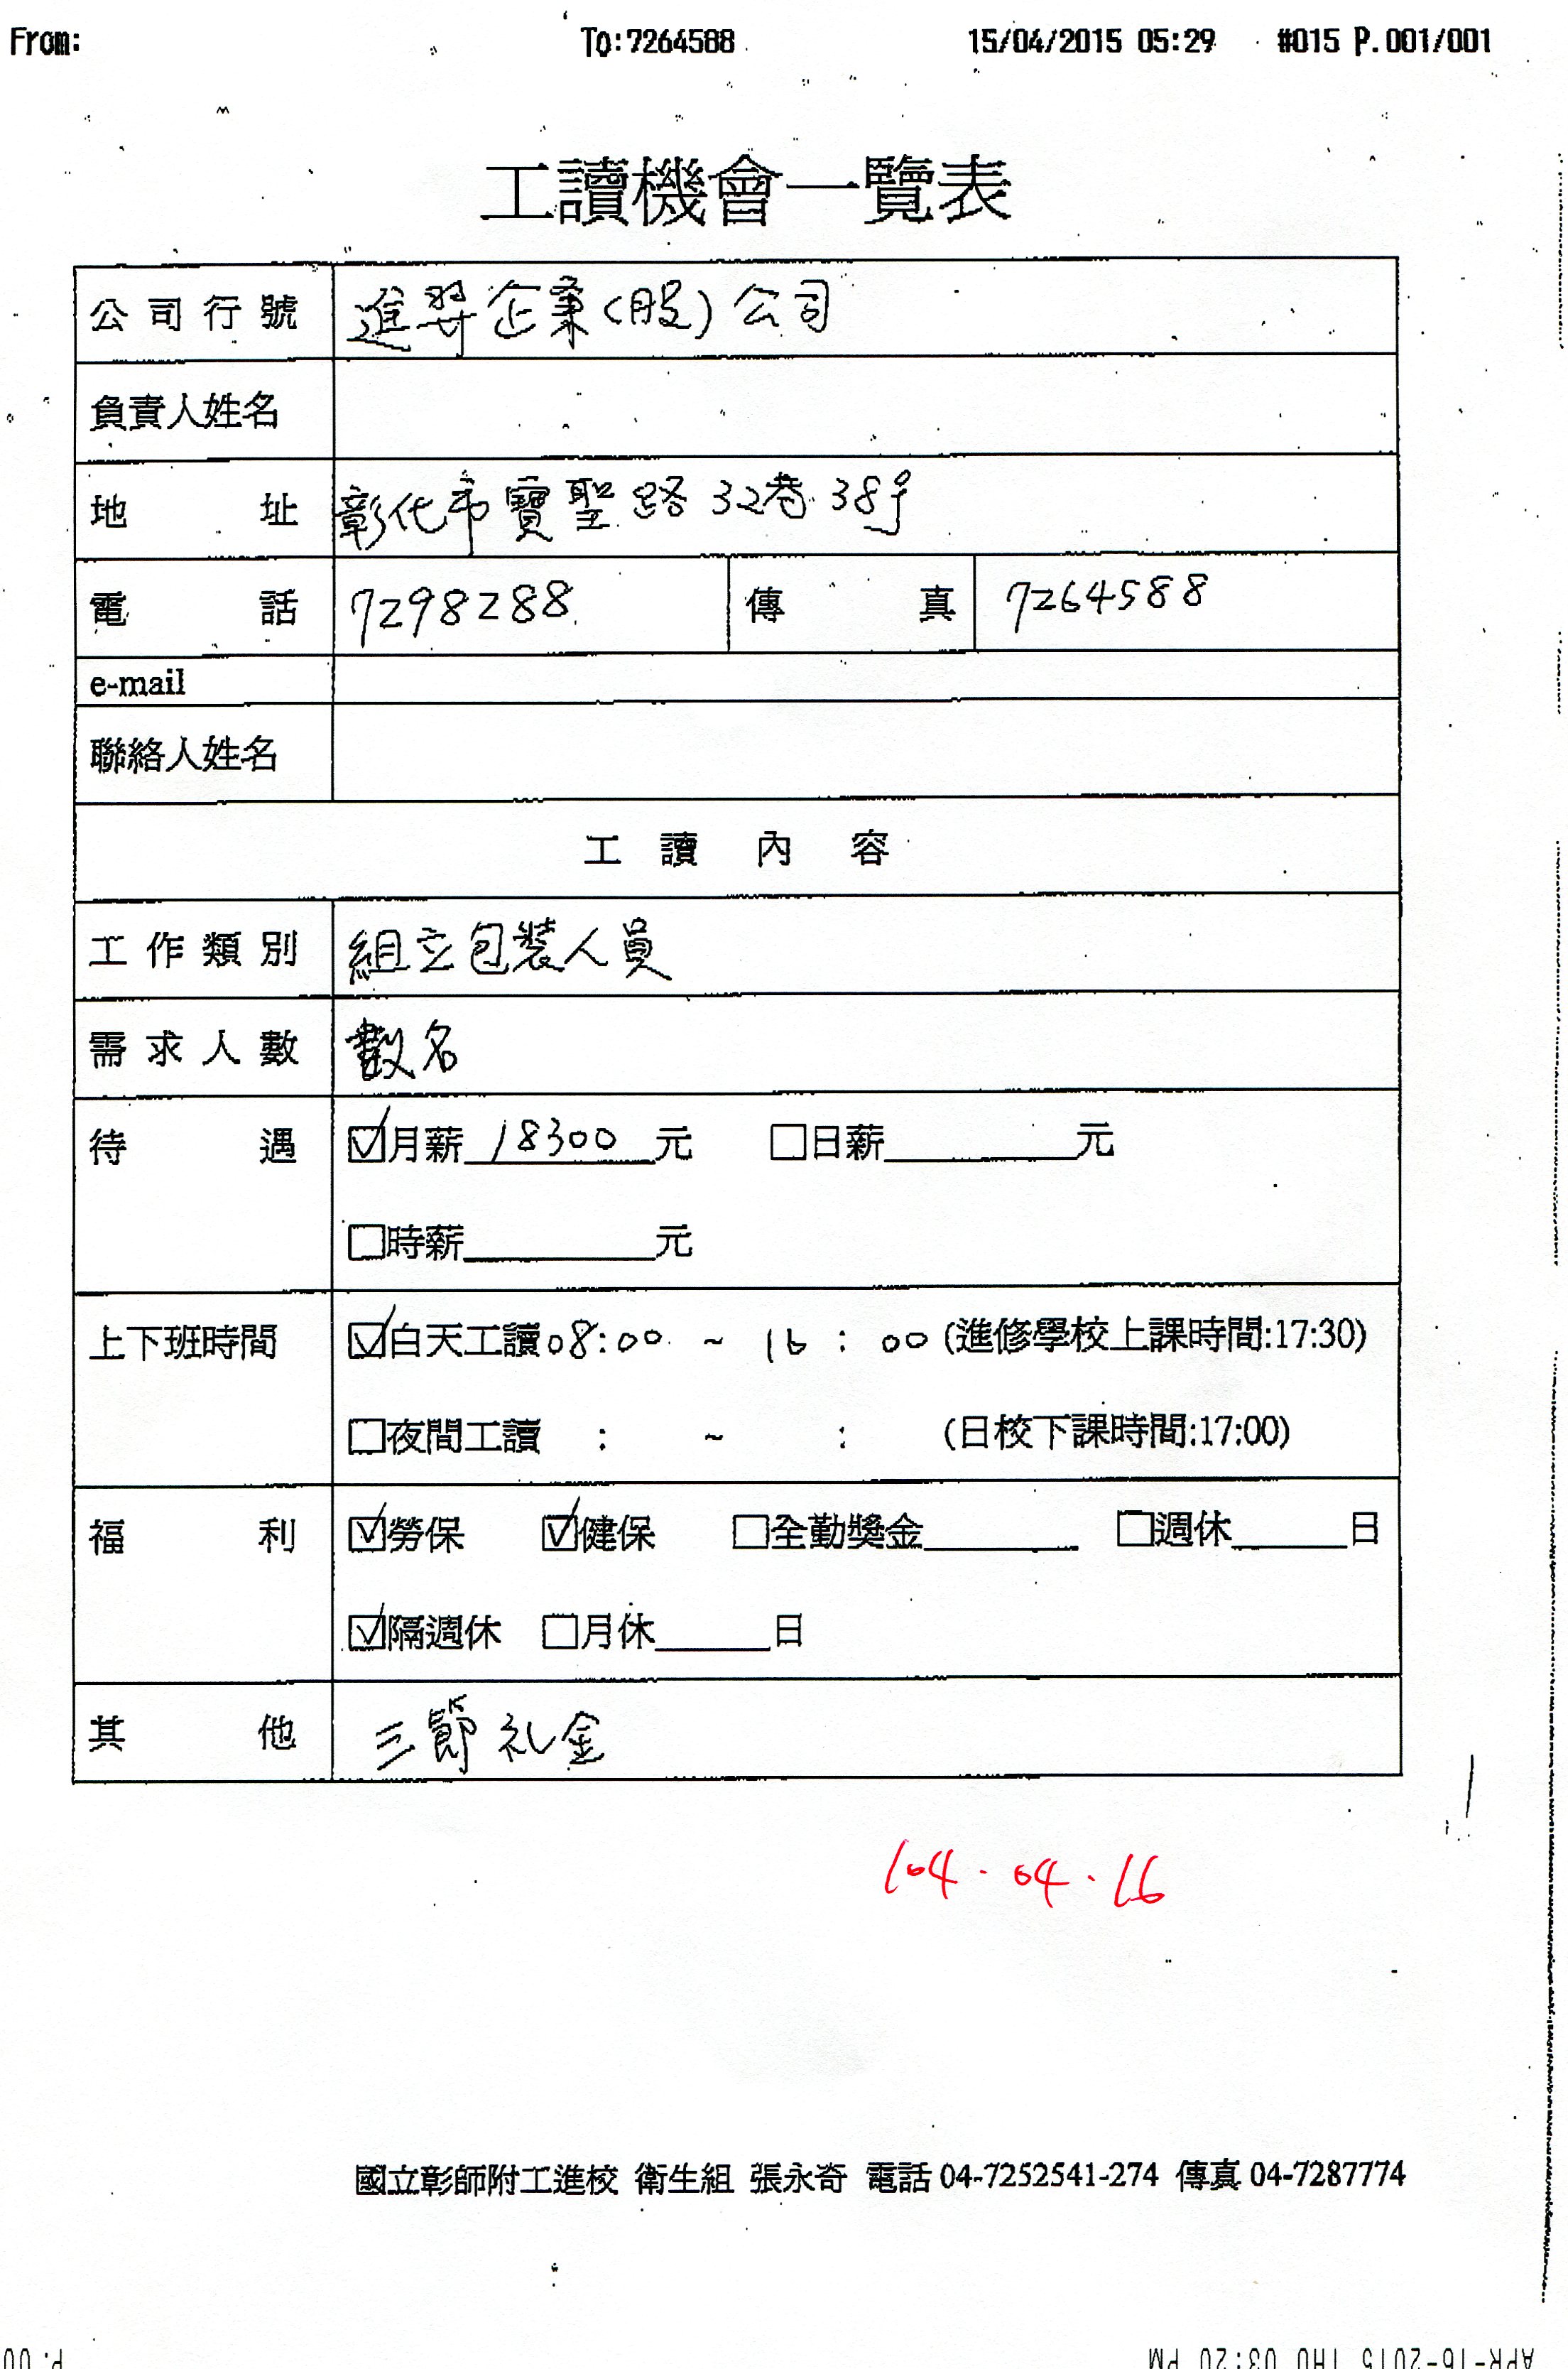 From: To:7264588 15/04/2015 05:29 #015 P.001/001
工讀機會一覽表
公司行號 進 企業(股)公司
負責人姓名
地址 彰化市寶聖路32巷38号
電話 7298288 傳真 7264588
e-mail
聯絡人姓名
工讀內容
工作類別 組立包裝人員
需求人數 數名
待遇 ☑月薪 18300 元 □日薪______元
□時薪______元
上下班時間 ☑白天工讀08:00 ~ 16:00 (進修學校上課時間:17:30)
□夜間工讀 : ~ : (日校下課時間:17:00)
福利 ☑勞保 ☑健保 □全勤獎金______ □週休______日
☑隔週休 □月休______日
其他 三節礼金
104.04.16
國立彰師附工進校 衛生組 張永奇 電話 04-7252541-274 傳真 04-7287774
APR-16-2015 THU 03:20 PM P.00